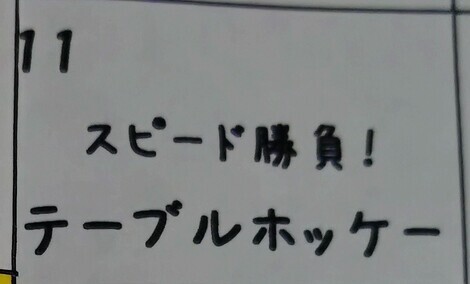 11
スピード勝負!
テーブルホッケー